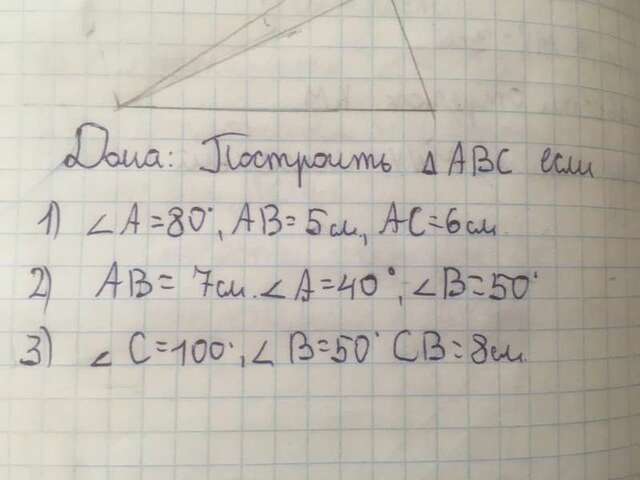 Дома: Построить △ ABC если
1) ∠A=80°, AB=5см, AC=6см
2) AB= 7см. ∠A=40°, ∠B=50°
3) ∠C=100°, ∠B=50° CB=8см